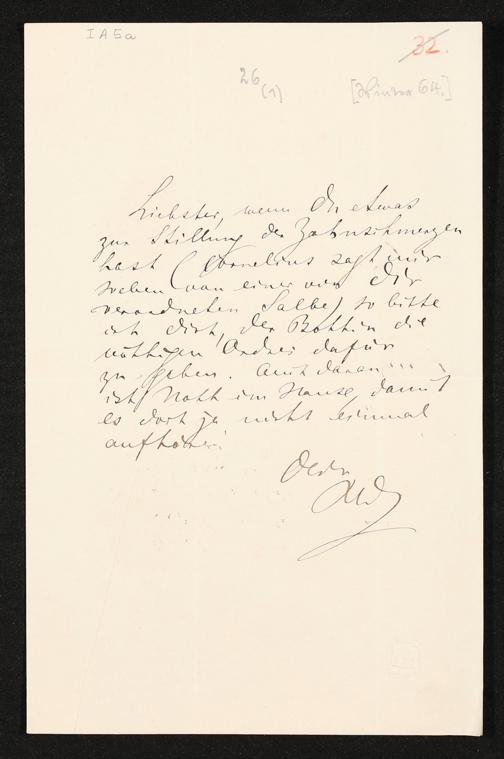 I A 5a
32.
26
(1)
[Winter 64.]
Liebster, wenn Du etwas
zur Stillung der Zahnschmerzen
hast (Cornelius sagt mir
soeben von einer von Dir
verordneten Salbe) so bitte
ich Dich, der Bothin die
nöthigen Ordres dafür
zu geben. Auch daran...
ist Noth im Hause, damit
es doch ja nicht einmal
aufhöre.
Dein